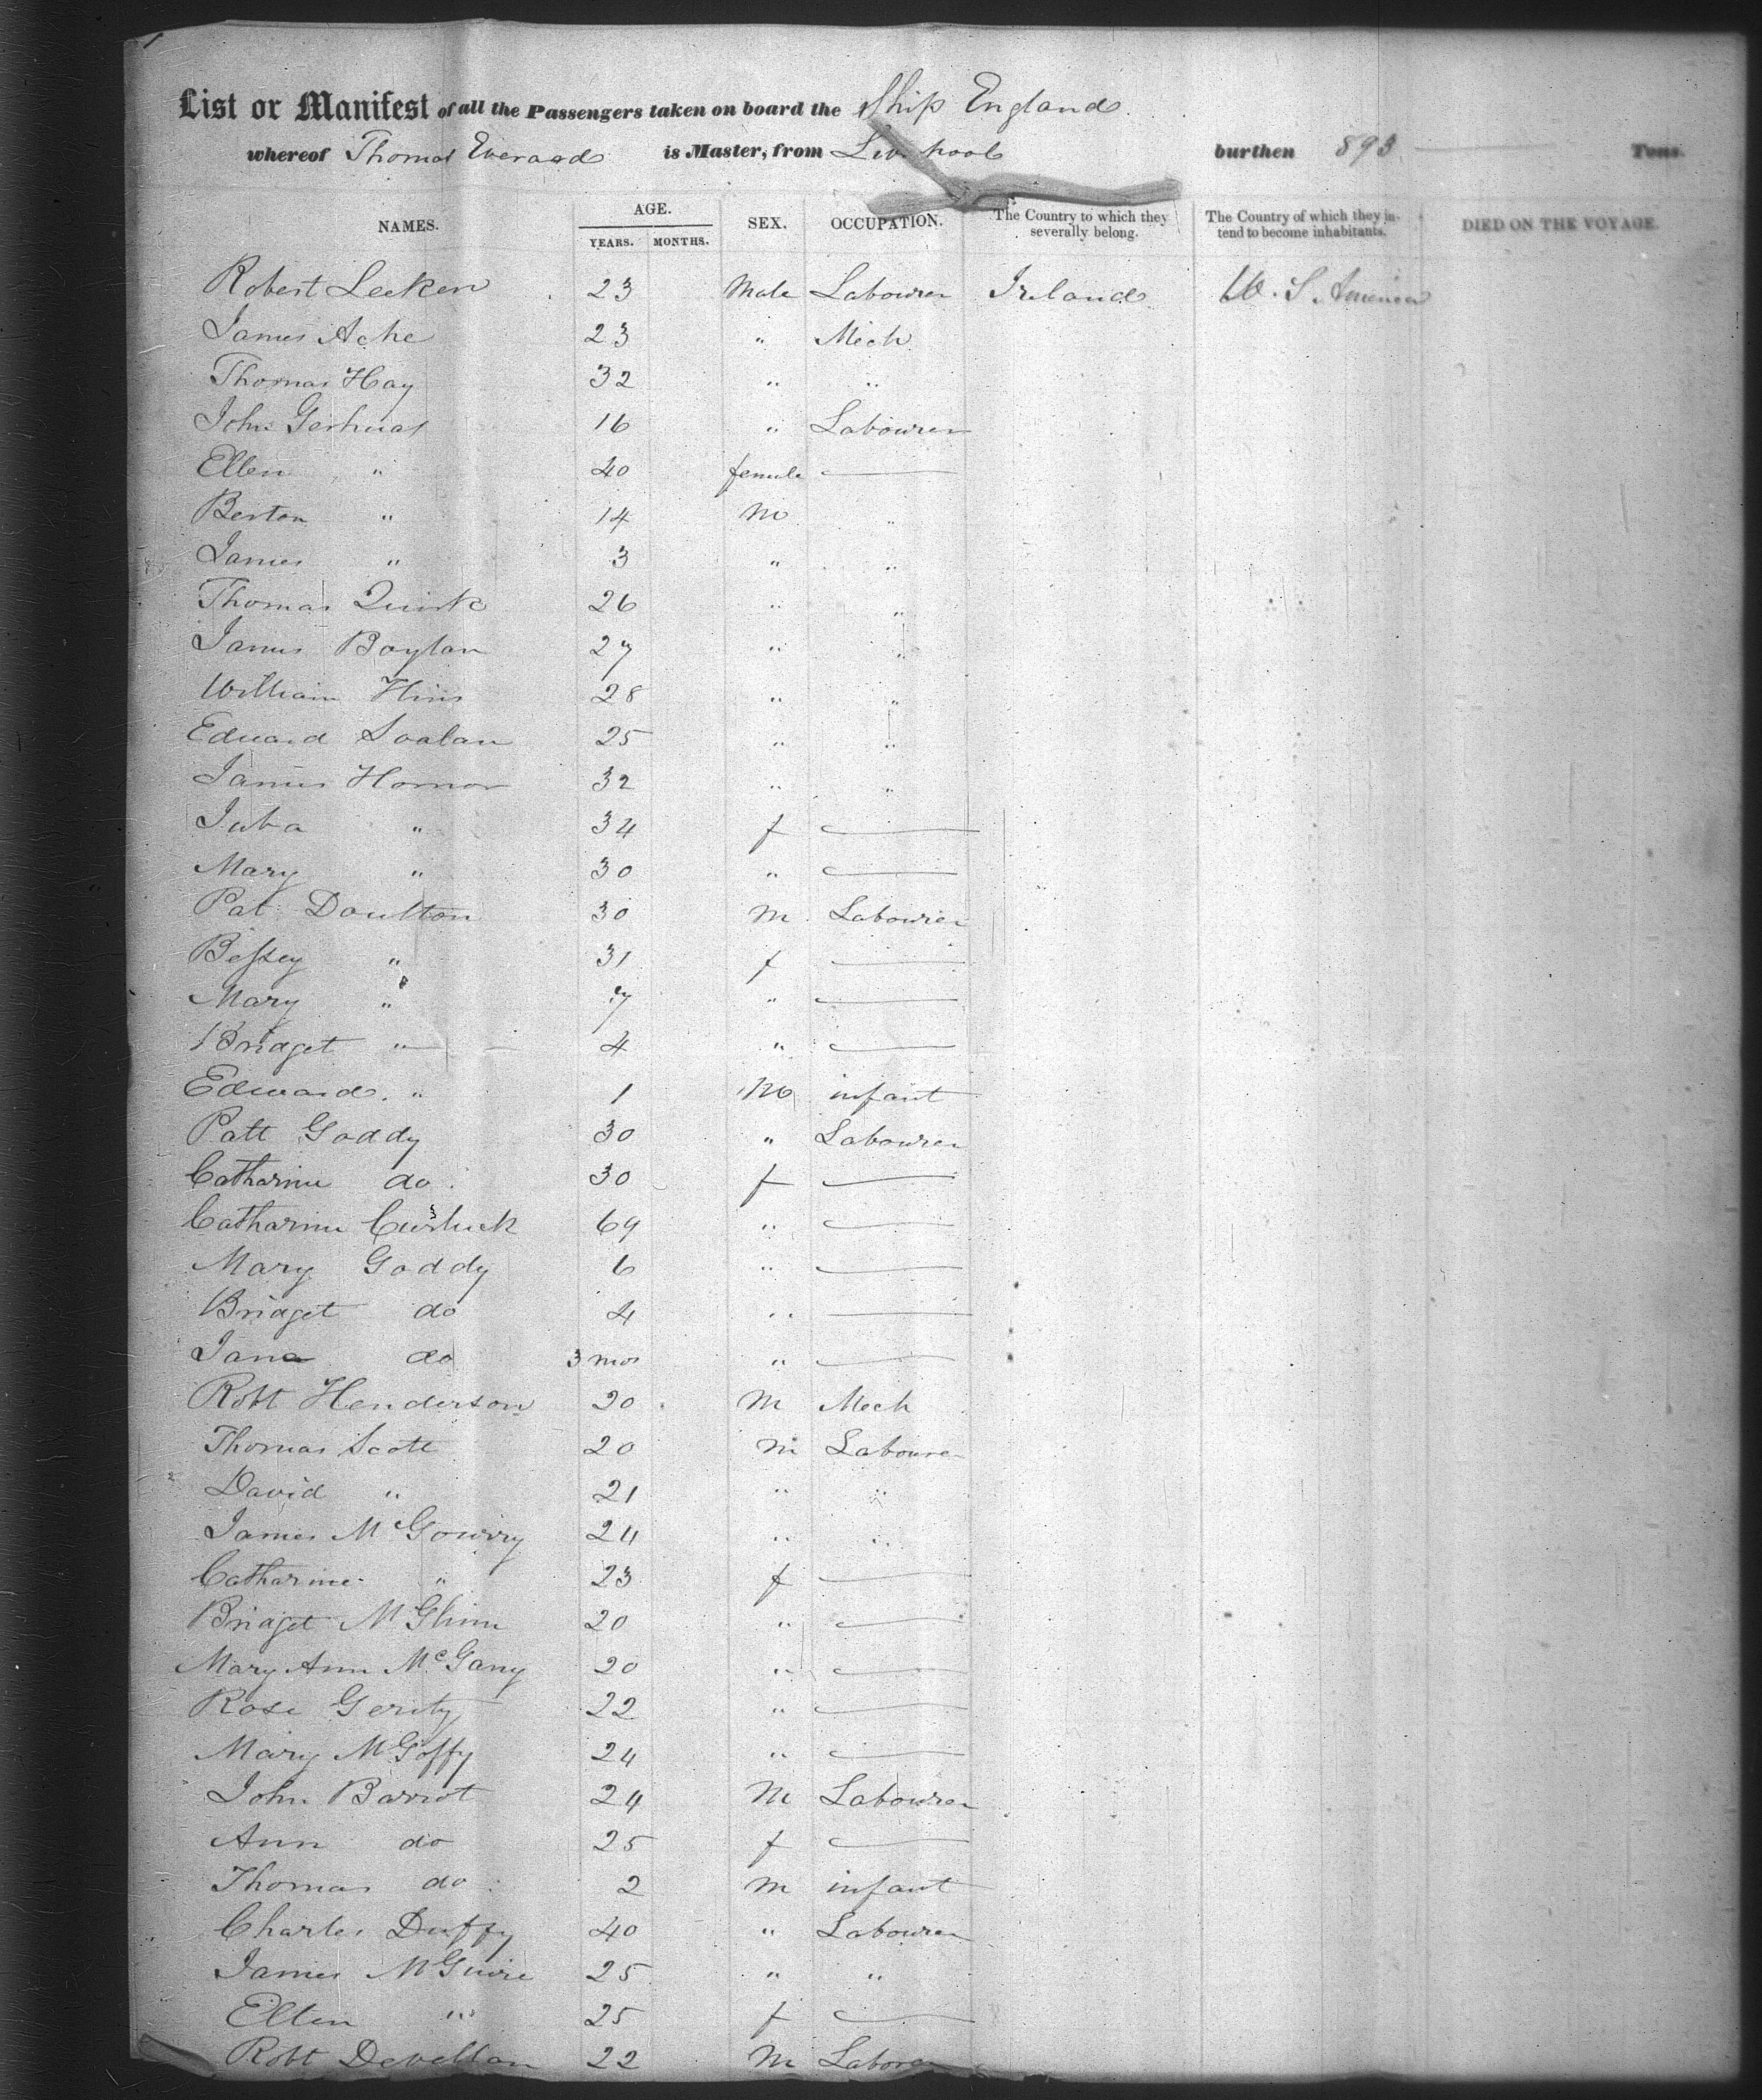 List or Manifest of all the Passengers taken on board the Ship England
whereof Thomas Everard is Master, from Liverpool burthen 893 Tons.
NAMES. AGE. YEARS. MONTHS. SEX. OCCUPATION. The Country to which they severally belong. The Country of which they intend to become inhabitants. DIED ON THE VOYAGE.
Robert Leeken 23 Male Labourer Ireland U. S. America
James Ache 23 " Mech
Thomas Hay 32 " "
John 16 " Labourer
Ellen " 40 female —
Berton " 14 M "
James " 3 " "
Thomas Quirk 26 " "
James Boylan 27 " "
William Hins 28 " "
Edward 25 " "
James Hornor 32 " "
34 f —
Mary " 30 " —
Pat Doulton 30 M Labourer
Bessey " 31 f —
Mary " 7 " —
Bridget " 4 " —
Edward " 1 M infant
Patt Goddy 30 " Labourer
Catharine do 30 f —
Catharine 69 " —
Mary Goddy 6 " —
Bridget do 4 " —
Jane do 3 mos " —
Robt Henderson 20 M Mech
Thomas Scott 20 M Labourer
David " 21 " "
James McGowry 24 " "
Catharine " 23 f —
Bridget McGlinn 20 " —
Mary Ann McGany 20 " —
Rose Gerity 22 " —
Mary McGoffy 24 " —
John Barrot 24 M Labourer
Ann do 25 f —
Thomas do 2 M infant
Charles Duffy 40 " Labourer
James McGuire 25 " "
Ellen " 25 f —
Robt Devellan 22 M Laborer